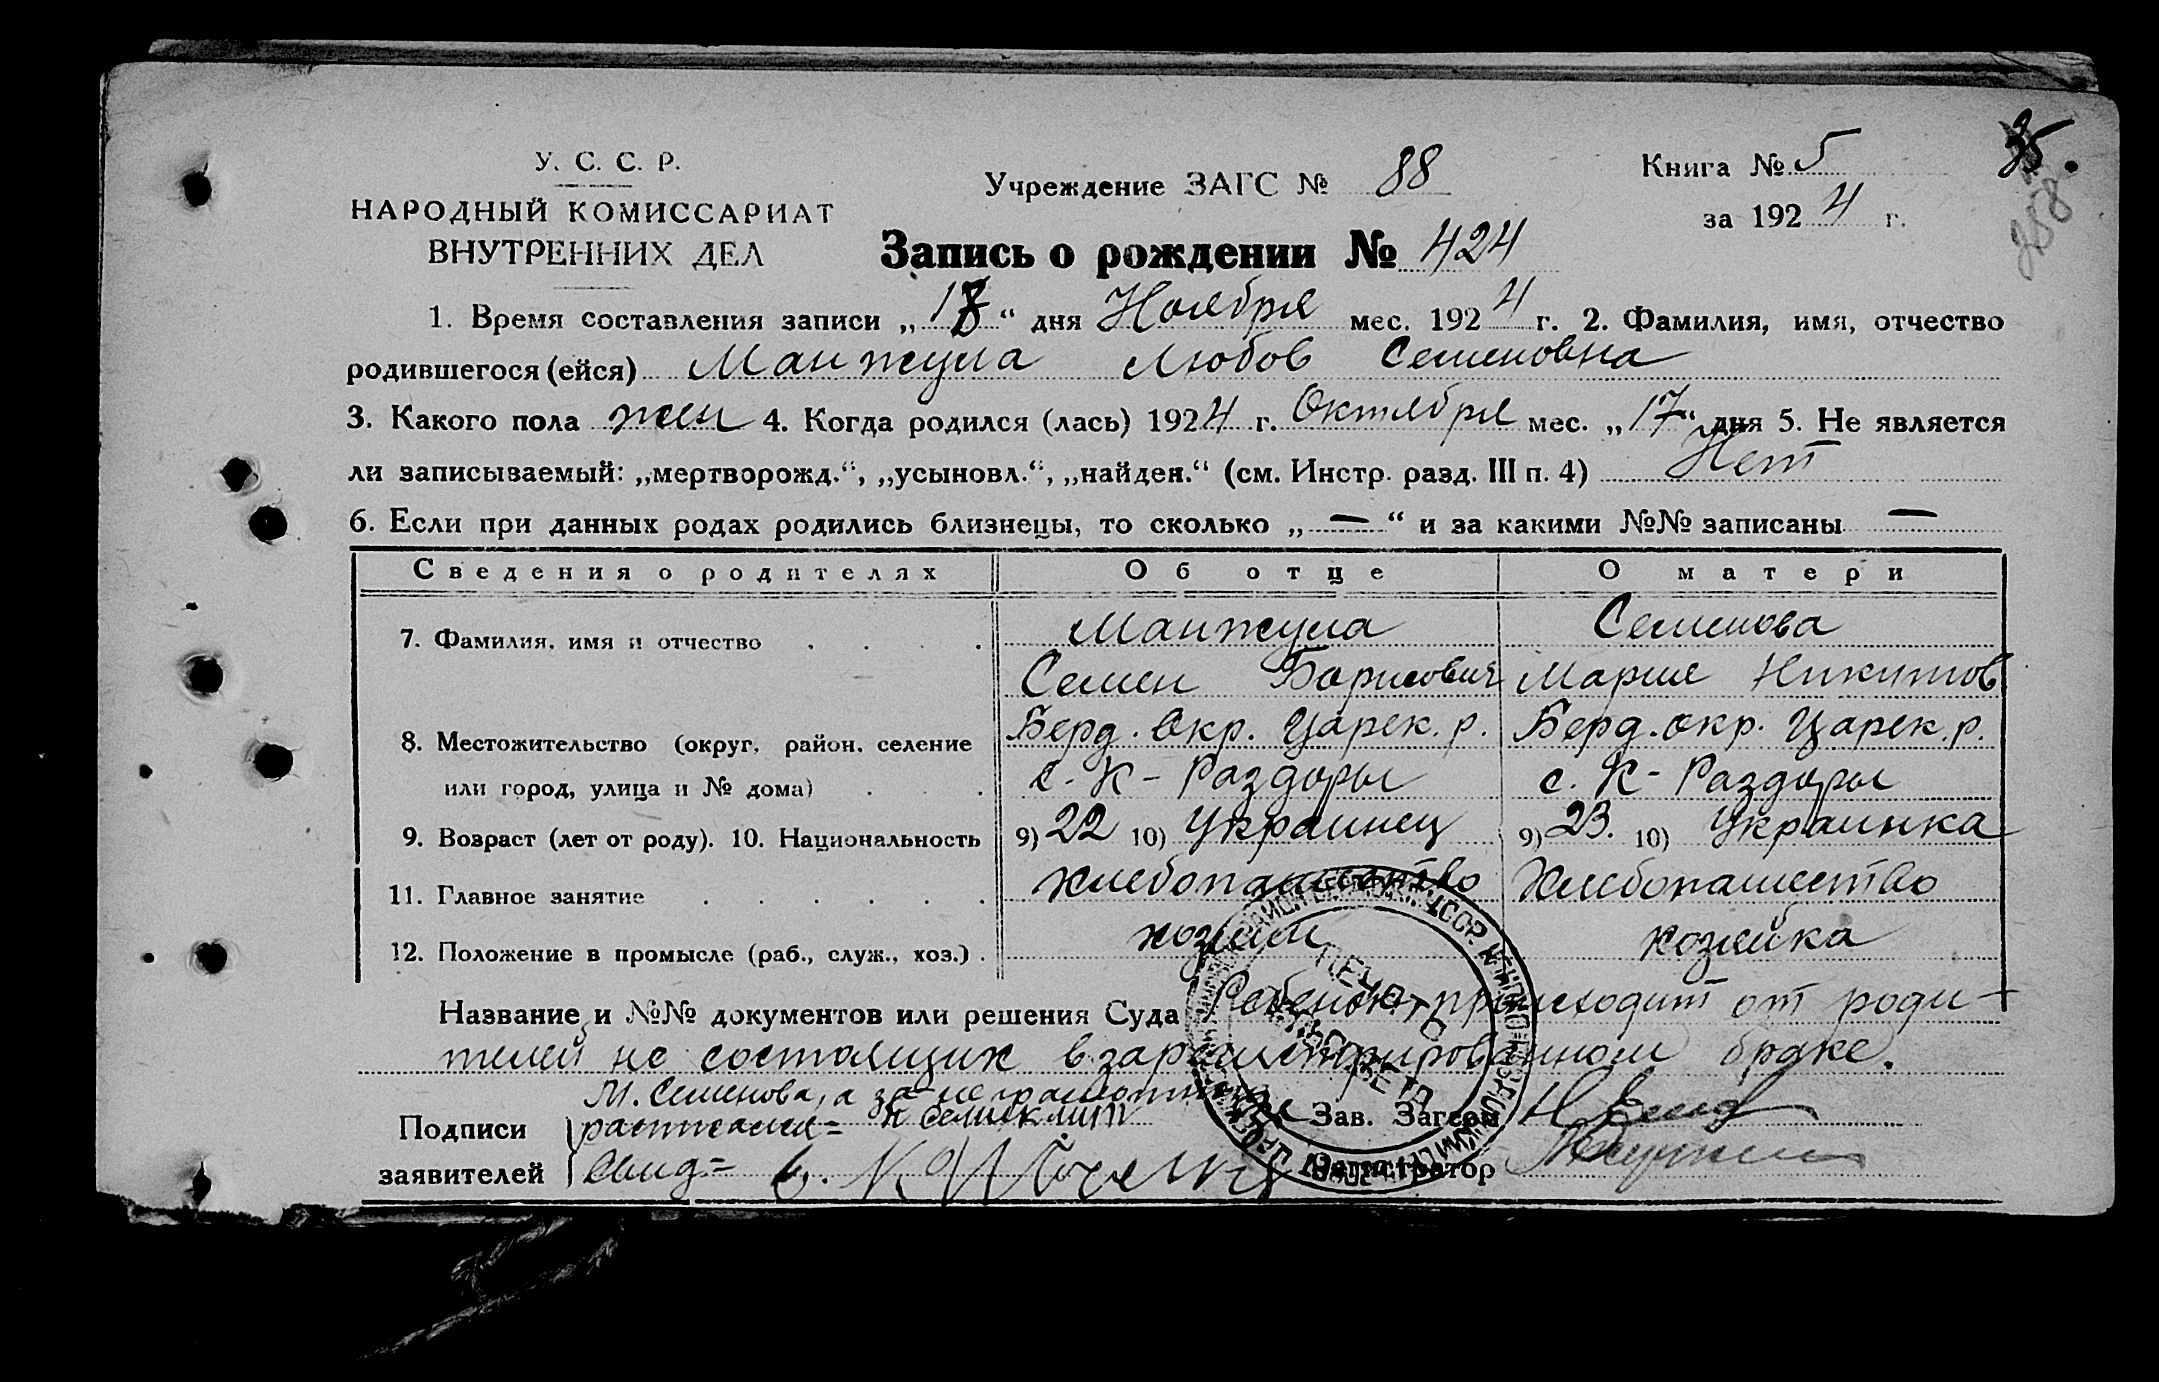 У. С. С. Р.
НАРОДНЫЙ КОМИССАРИАТ
ВНУТРЕННИХ ДЕЛ
Учреждение ЗАГС № 88
Книга № 5
за 1924 г.
35.
358
Запись о рождении № 424
1. Время составления записи „18“ дня Ноября мес. 1924 г. 2. Фамилия, имя, отчество
родившегося (ейся) Манжула Любов Семеновна
3. Какого пола жен 4. Когда родился (лась) 1924 г. Октября мес. „17“ дня 5. Не является
ли записываемый: „мертворожд.“, „усыновл.“, „найден.“ (см. Инстр. разд. III п. 4) Нет
6. Если при данных родах родились близнецы, то сколько „—“ и за какими №№ записаны —
Сведения о родителях Об отце О матери
7. Фамилия, имя и отчество . . . . Манжула Семенова
Семен Борисович Марие Никитов
8. Местожительство (округ, район, селение Берд. Окр. Царек. р. Берд. окр. Царек. р.
или город, улица и № дома) . . . с. К - Раздоры с. К - Раздоры
9. Возраст (лет от роду). 10. Национальность 9) 22 10) Украинец 9) 23. 10) Украинка
11. Главное занятие . . . . . . хлебопашество Хлебопашество
12. Положение в промысле (раб., служ., хоз.) . хозяин хозяйка
Название и №№ документов или решения Суда Ребенок происходит от роди-
телей не состоящих в зарегистрированном браке.
М. Семенова, а за неграмотную
Подписи
заявителей
Свид=
Зав. Загсом
Регистратор
ПЕЧАТЬ